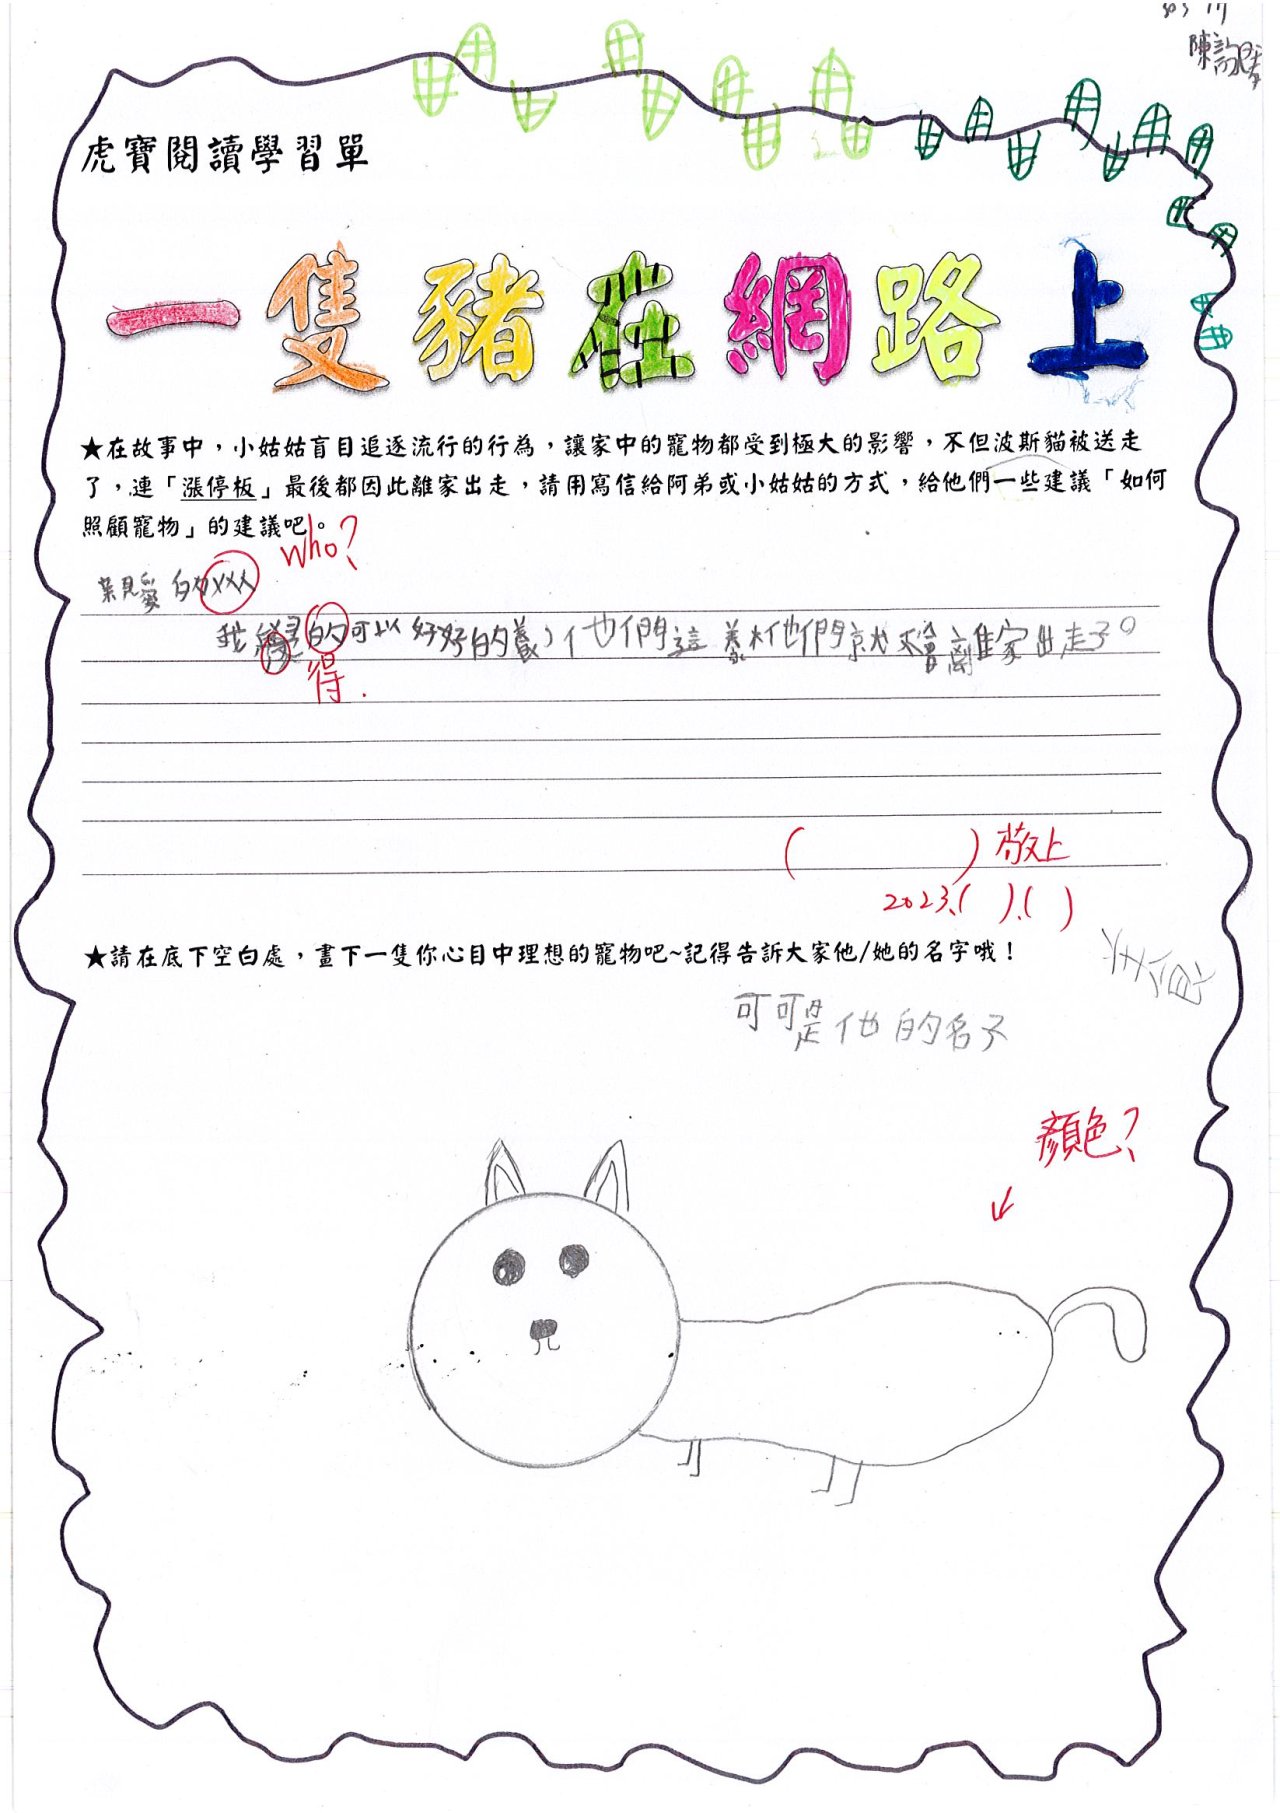 陳
虎寶閱讀學習單
一隻豬在網路上
★在故事中，小姑姑盲目追逐流行的行為，讓家中的寵物都受到極大的影響，不但波斯貓被送走
了，連「漲停板」最後都因此離家出走，請用寫信給阿弟或小姑姑的方式，給他們一些建議「如何
照顧寵物」的建議吧。
who?
親愛的XXX
我覺的可以好好的養他們這樣他們就不會離家出走了。
得.
( )敬上
2023.( ).( )
★請在底下空白處，畫下一隻你心目中理想的寵物吧~記得告訴大家他/她的名字哦！
可可是他的名子
顏色?